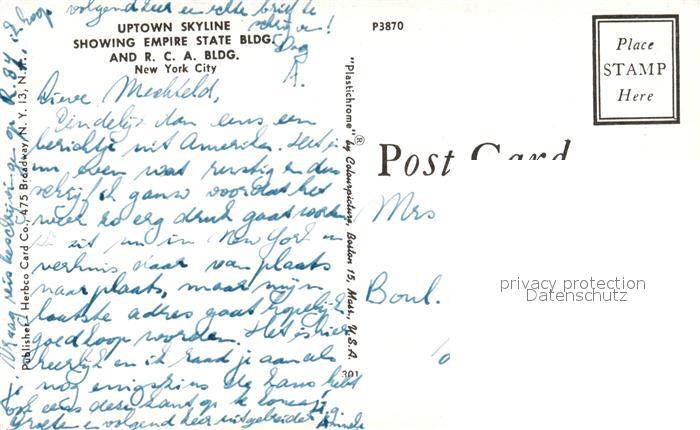 volgend keer een echte brief te
schrijven!
Dag
A.
UPTOWN SKYLINE
SHOWING EMPIRE STATE BLDG.
AND R. C. A. BLDG.
New York City
Lieve Mechteld,
Eindelijk dan eens een
berichtje uit Amerika. Het is
nu even wat rustig en dus
schrijf ik gauw voordat het
weer zo erg druk gaat worden
zit nu in New York en
verhuis daar van plaats
naar plaats, maar mijn
laatste adres gaat hopelijk
goedkoop worden. Het is hier
heerlijk en ik raad je aan als
je nog enigszins de kans hebt
ook eens deze kant op te komen
Groeten en volgend keer uitgebreider
Publisher: Herbco Card Co., 475 Broadway, N. Y. 13, N.
"Plastichrome" ® by Colourpicture, Boston 15, Mass., U.S.A.
301
P3870
Place
STAMP
Here
Post Card
Mrs
Boul.
privacy protection
Datenschutz